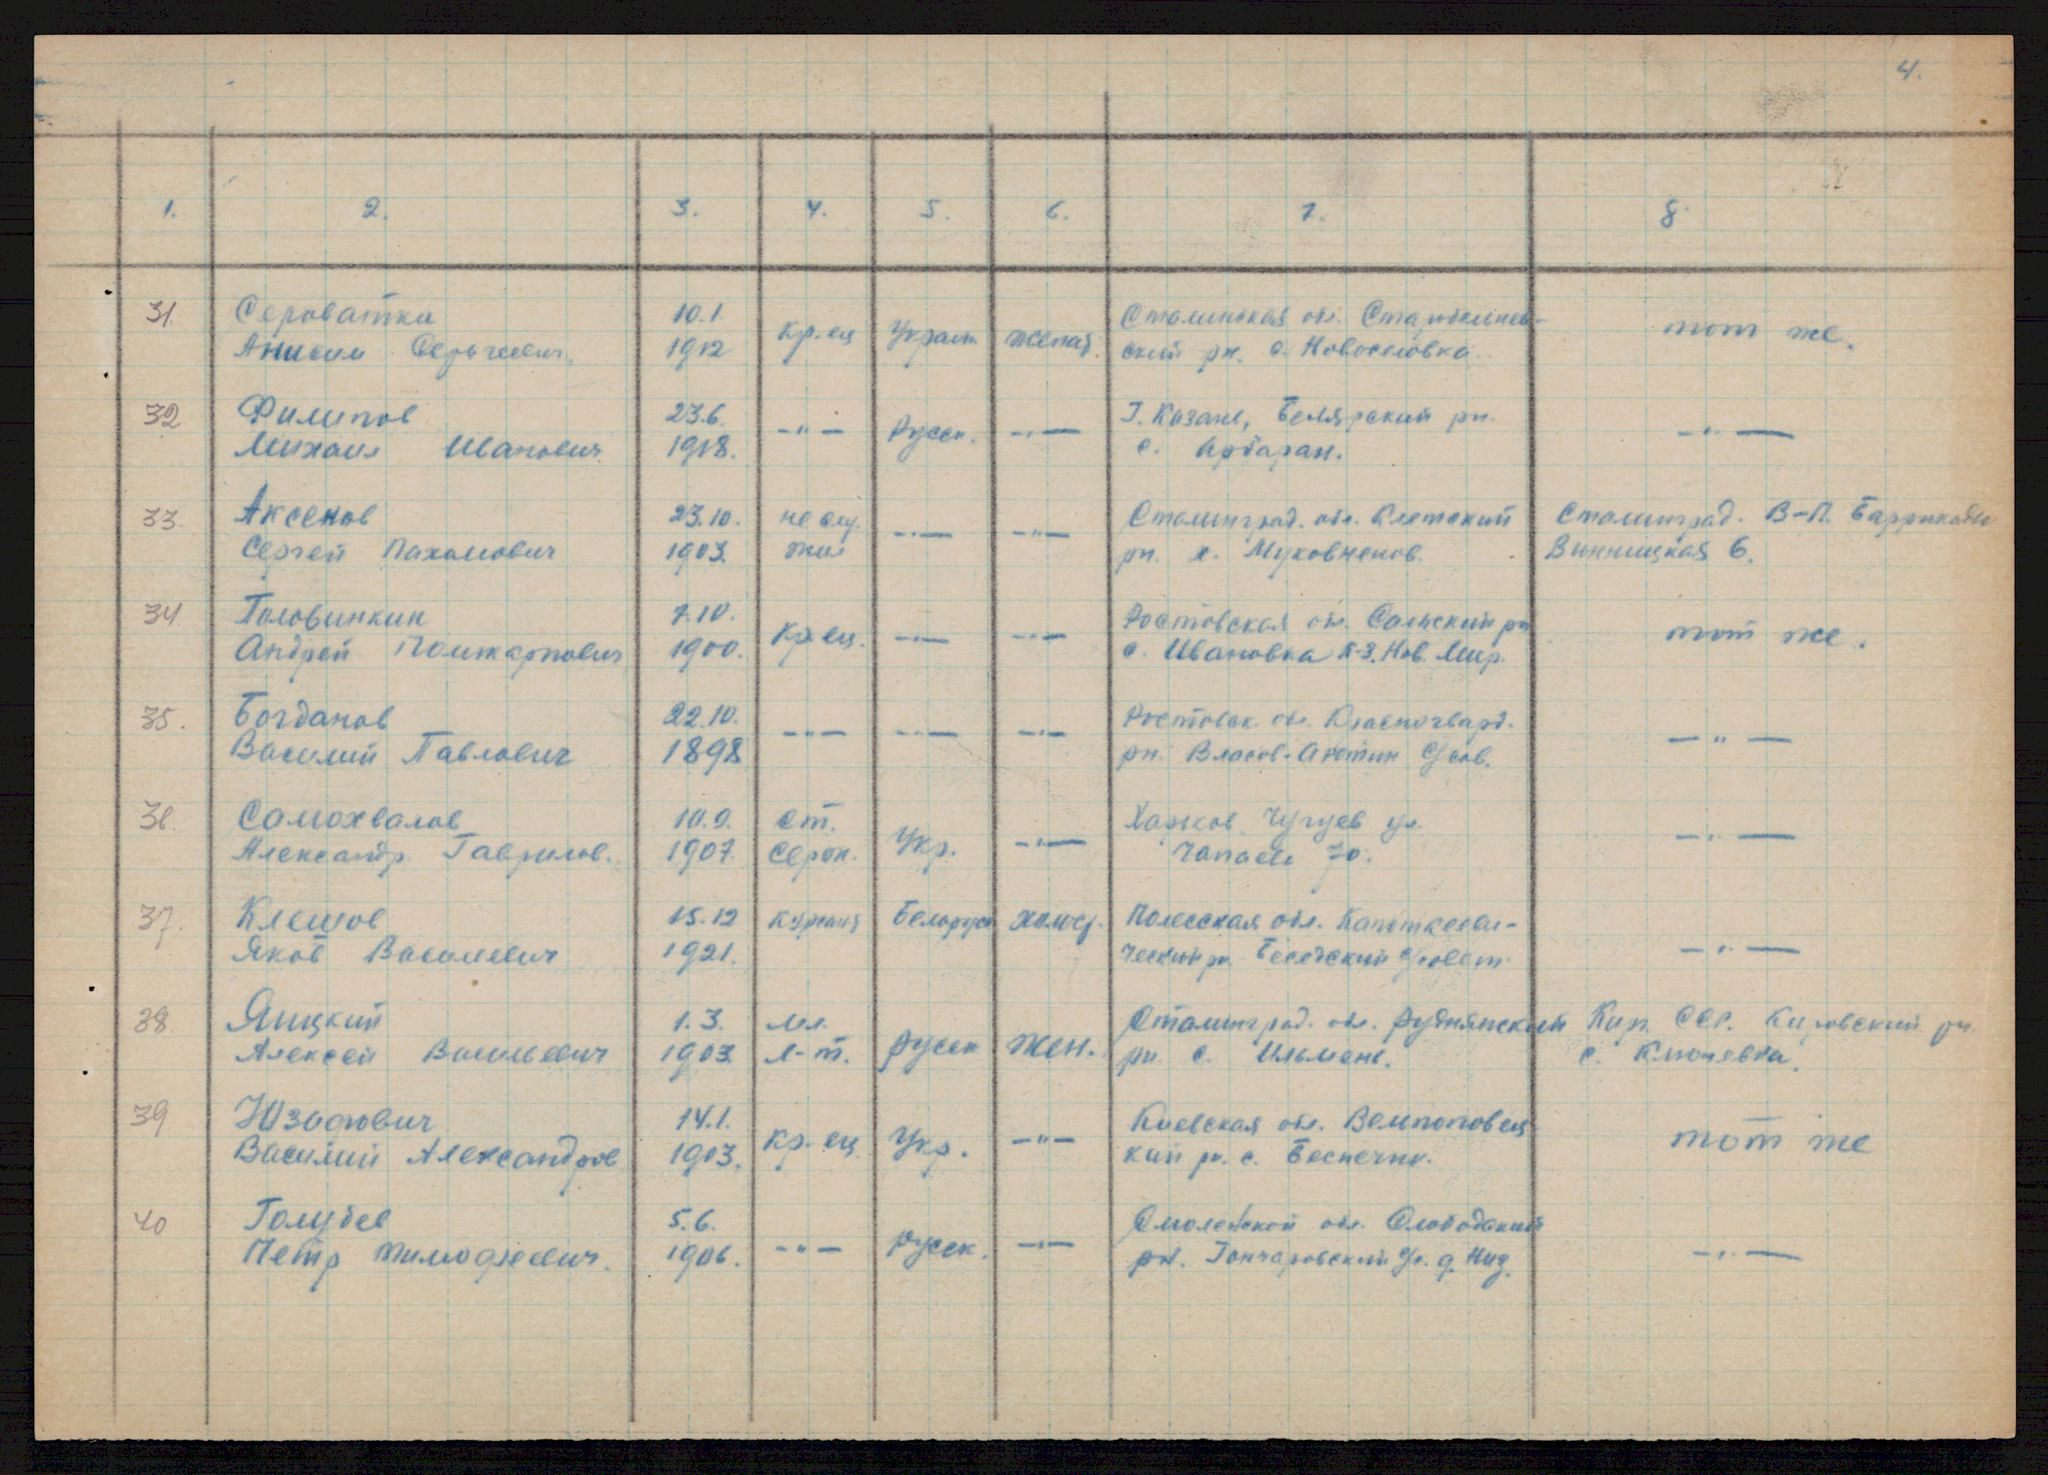 4.
1. 2. 3. 4. 5. 6. 7. 8.
31. Сероватка 10.1. Кр-ец Украин женат. Сталинская обл. Старобешев- тот же.
Анисим Сергеевич. 1912 ский рн. с. Новоселовка
32 Филипов 23.6. -"- Русск. -"- Г. Казань, Белярский рн. -"-
Михаил Иванович 1918. с. Арбаран.
33. Аксенов 23.10. не слу. -"- -"- Сталинград. обл. Клетский Сталинград. В-П. Баррикадн
Сергей Пахомович 1903. жил рн. х. Муковненов. Винницкая 6.
34. Головинкин 7.10. Кр-ец. -"- -"- Ростовская обл. Сальский рн тот же.
Андрей Поликарпович 1900. с. Ивановка К-З. Нов. Мир.
35. Богданов 22.10. -"- -"- -"- Ростовск. обл. Красногвард. -"-
Василий Павлович 1898 рн. Власов-Аютин С/сов.
36. Самохвалов 10.9. ст. Укр. -"- Харьков Чугуев ул. -"-
Александр Гаврилов. 1907. Серж. Чапаева 70.
37. Клешов 15.12 курсант Белорусс холост. Полесская обл. Копоткеви- -"-
Яков Василевич 1921. ческий рн
38. Яицкий 1.3. мл. Русск жен. Сталинград. обл. Руднянский Кир. ССР. Кировский рн
Алексей Васильевич 1903. л-т. рн. с. Ильмень. с. Ключевка.
39 Юзафович 14.1. Кр-ец Укр. -"- Киевская обл. тот же
Василий Александров 1903. кий рн. с. Беспечно.
40 Голубев 5.6. -"- Русск. -"- Смоленской обл. Слободский -"-
Петр Тимофеевич. 1906. рн. Гончаровский д. Низ.